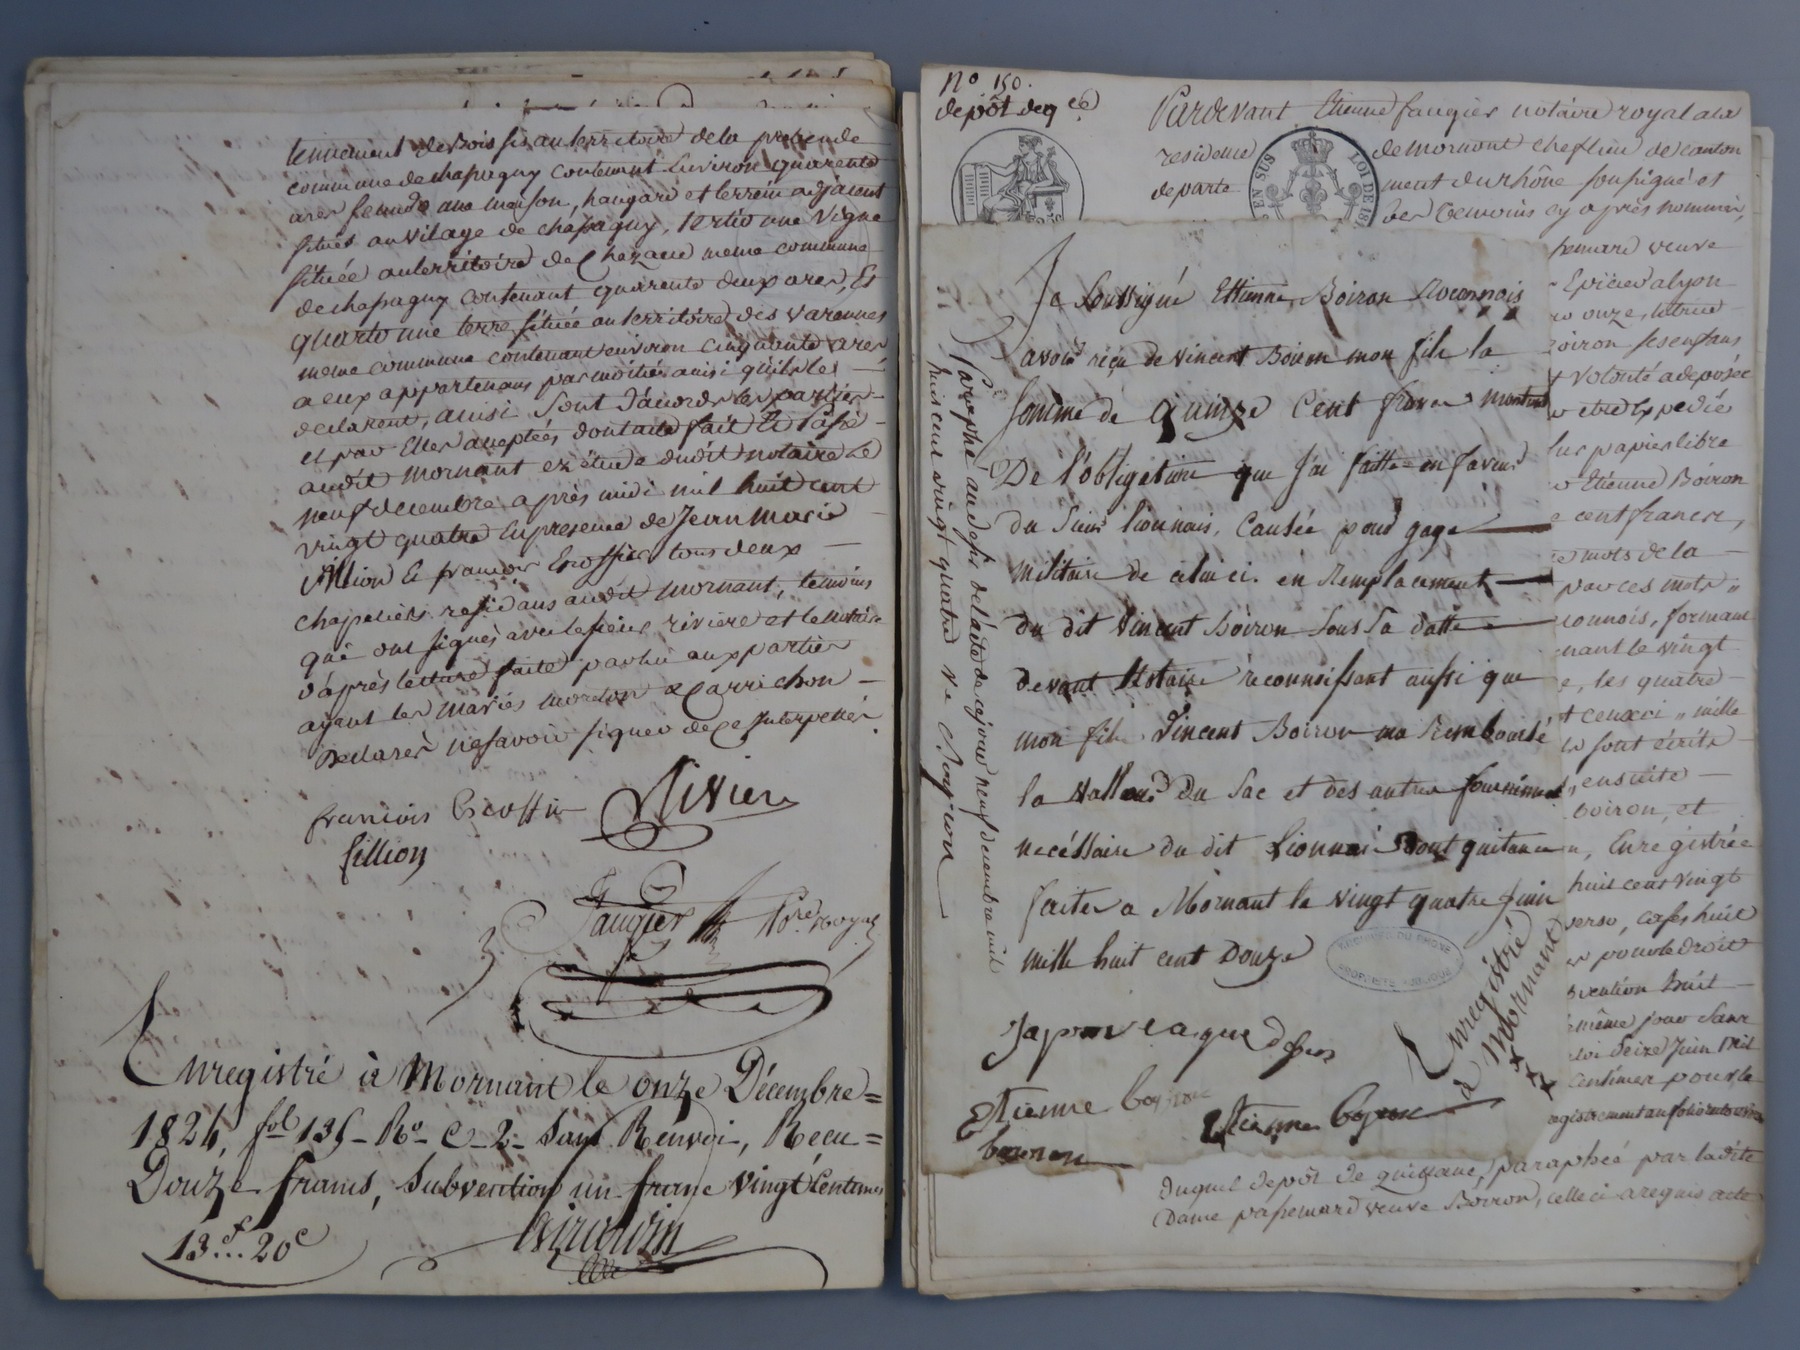 tennement de bois sis au territoire de la prebende
commune de chassagny contenant Environ quarante
ares ensuite une maison, hangard et terrein adjacent
situés au vilage de chassagny, tertio une vigne
située au territoire de Chezaud meme commune
de chassagny contenant quarante deux ares, Et
quarto une terre située au territoire des varennes
meme commune contenant environ cinquante ares
a eux appartenans par moitié ainsi qu'ils le
declarent, ainsi Sont d'acord les parties
et par Elles acceptés, dont acte fait Et Passé
audit mornant ez étude dudit notaire Le
neuf decembre après midi mil huit cent
vingt quatre En presence de Jean Marie
fillion Et françois Escoffier tous deux
chapeliers residans audit mornant, temoins
qui ont signés avec le sieur riviere et le notaire
d'après lecture faite par lui aux parties
ayant les mariés moreton & Carrichon
Declarés ne savoir signer de ce Interpellés
francois Escoffier Rivier
fillion
Faugier Nre Royal
Enregistré à Mornant le onze Décembre =
1824, fol 135 Ro C 2 Sans Renvoi, Recu =
Douze francs, Subvention un franc vingt Centimes
13f.. 20c
No 150.
depôt de qce
Pardevant Etienne faugier notaire royal ala
residence de mornant cheflieu de canton
departement du rhône soussigné et
des temoins cy après nommés,
EN SUS
LOI DE 18
pemard veuve
Epicier a lyon
ro onze, laquelle
Boiron ses enfans
t volonté a deposée
r etre Expedié
sur papier libre
Etienne Boiron
e cent francs,
mots de la
par ces mots "
connois, formant
nant le vingt
e, les quatre
t ceux ci " mille
sont écrits
, ensuite
boiron, et
n, Enregistrée
huit cent vingt
verso, cases huit
pour le droit
bvention huit
même jour Sans
loi Seize Juin Mil
Centimes pour le
Je Soussigné Ettienne Boiron Reconnois
avoir reçu de vincent Boiron mon fils la
somme de quinze Cent francs montant
De l'obligation que J'ai faitte en faveur
du Sieur lionnais, Causée pour gage
militaire de celui ci. en Remplacement
du dit Vincent Boiron Sous Sa datte
devant Notaire reconnoissant aussi que
mon fils Vincent Boiron ma Remboursé
la Valleur Du Sac et des autres fourniment
necéssaire du dit Lionnais Dont quitance
faites a Mornant le vingt quatre Juin
mille huit cent Douze
ARCHIVES DU RHONE
PROPRIETE PUBLIQUE
Japrouve aque desus
Etienne boyron Etienne boyron
boiron
Enregistré
à Mornant
Paraphé au desir de l'acte de ce jour neuf decembre mil
huit cent vingt quatre
Duquel depôt de quittance, paraphée par ladite
Dame pasemard veuve Boiron, celle ci a requis acte